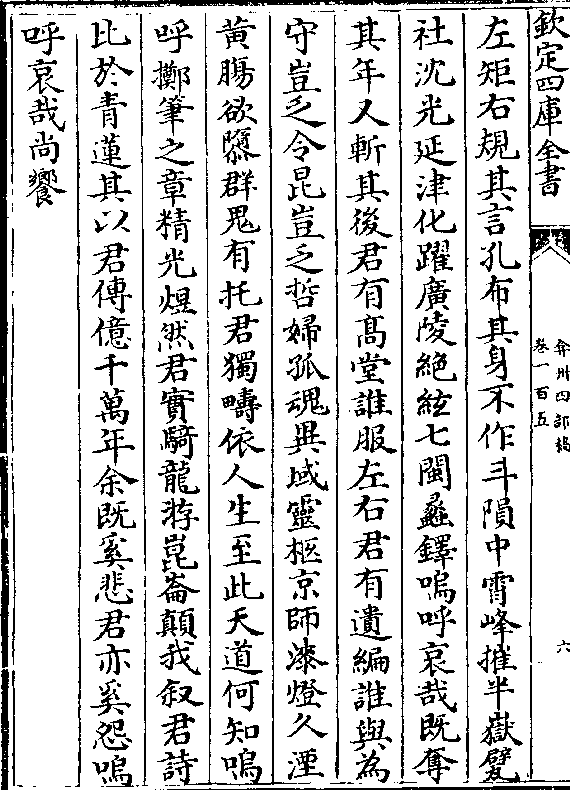 欽定四庫全書
弇州四部稿
卷一百五
六
左矩右規其言孔布其身不作斗隕中霄峰摧半嶽躄
社沈光延津化躍廣陵絶絃七閩蠡鐸嗚呼哀哉既奪
其年又斬其後君有髙堂誰服左右君有遺編誰與為
守豈乏令昆豈乏哲婦孤魂異域靈柩京師漆燈久湮
黄腸欲隳群鬼有托君獨疇依人生至此天道何知嗚
呼擲筆之章精光煜然君實騎龍游崑崙顛我叙君詩
比於青蓮其以君傳億千萬年余既奚悲君亦奚怨嗚
呼哀哉尚饗